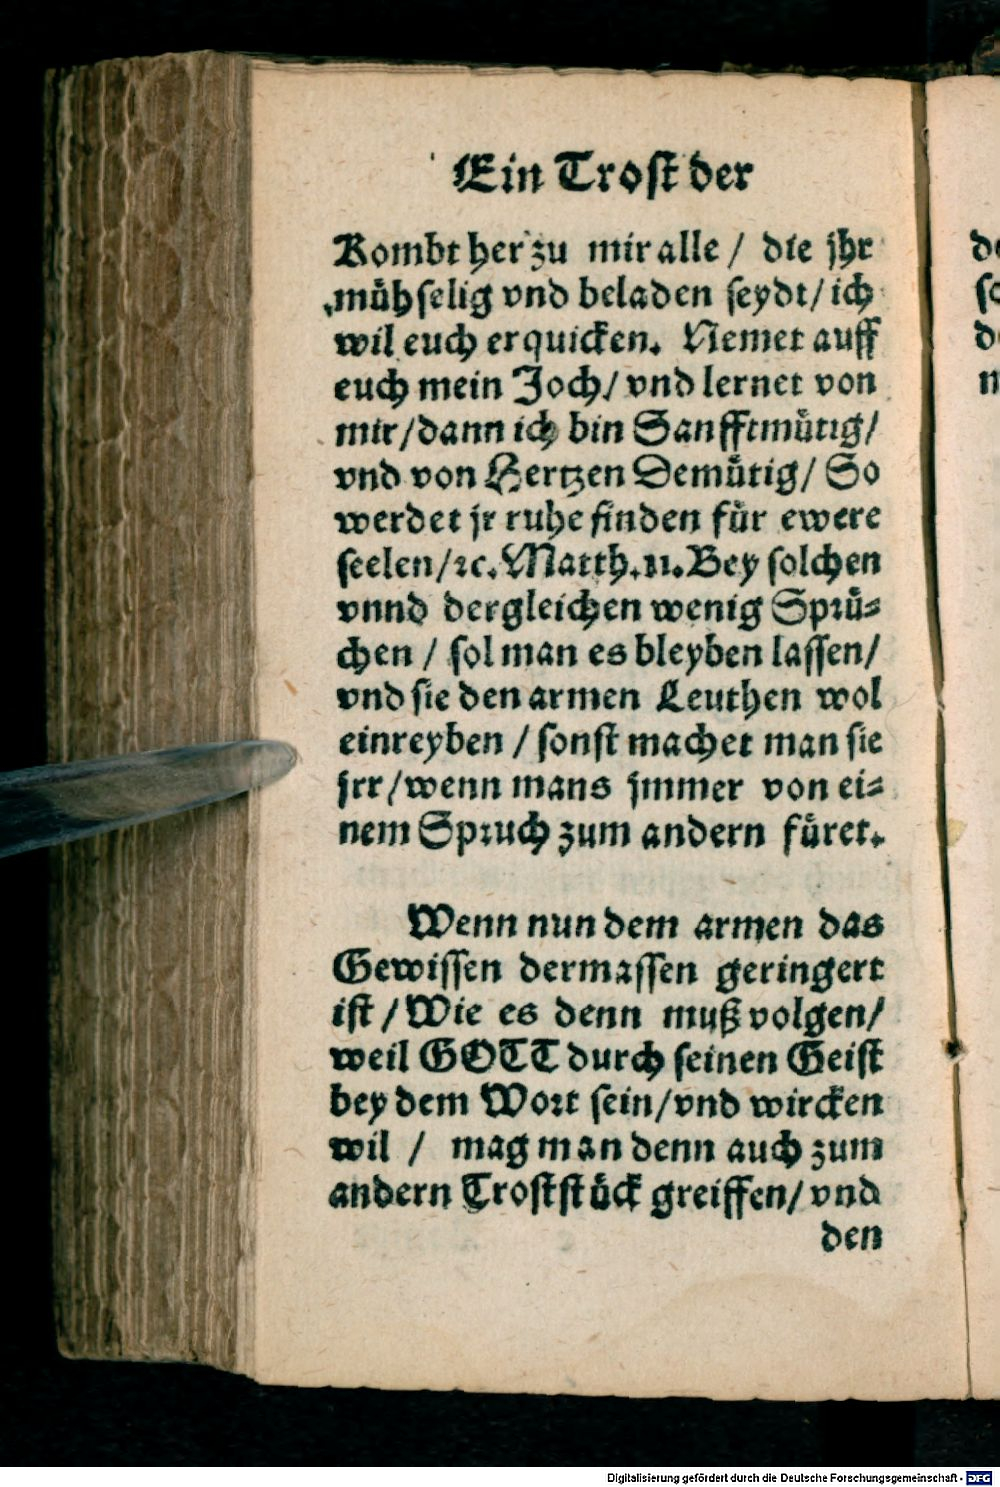 Ein Trost der
Kombt her zu mir alle / die jhr
mühselig vnd beladen seydt / ich
wil euch erquicken. Nemet auff
euch mein Joch / vnd lernet von
mir / dann ich bin Sanfftmütig /
vnd von Hertzen Demütig / So
werdet jr ruhe finden für ewere
seelen / ꝛc. Matth. 11. Bey solchen
vnnd dergleichen wenig Sprü⸗
chen / sol man es bleyben lassen /
vnd sie den armen Leuthen wol
einreyben / sonst machet man sie
jrr / wenn mans jmmer von ei⸗
nem Spruch zum andern füret.
Wenn nun dem armen das
Gewissen dermassen geringert
ist / Wie es denn muß volgen /
weil GOTT durch seinen Geist
bey dem Wort sein / vnd wircken
wil / mag man denn auch zum
andern Troststück greiffen / vnd
den
Digitalisierung gefördert durch die Deutsche Forschungsgemeinschaft - DFG